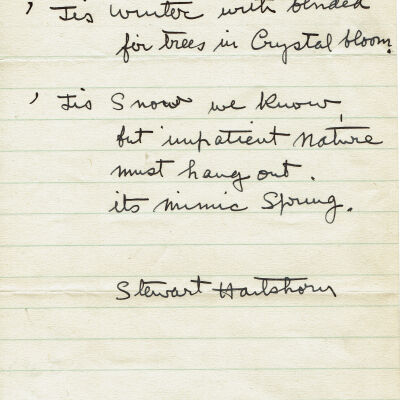 ' Tis Winter with blended
fir trees in Crystal bloom.
' Tis Snow we know,
but impatient Nature
must hang out.
its mimic Spring.
Stewart Hartshorn